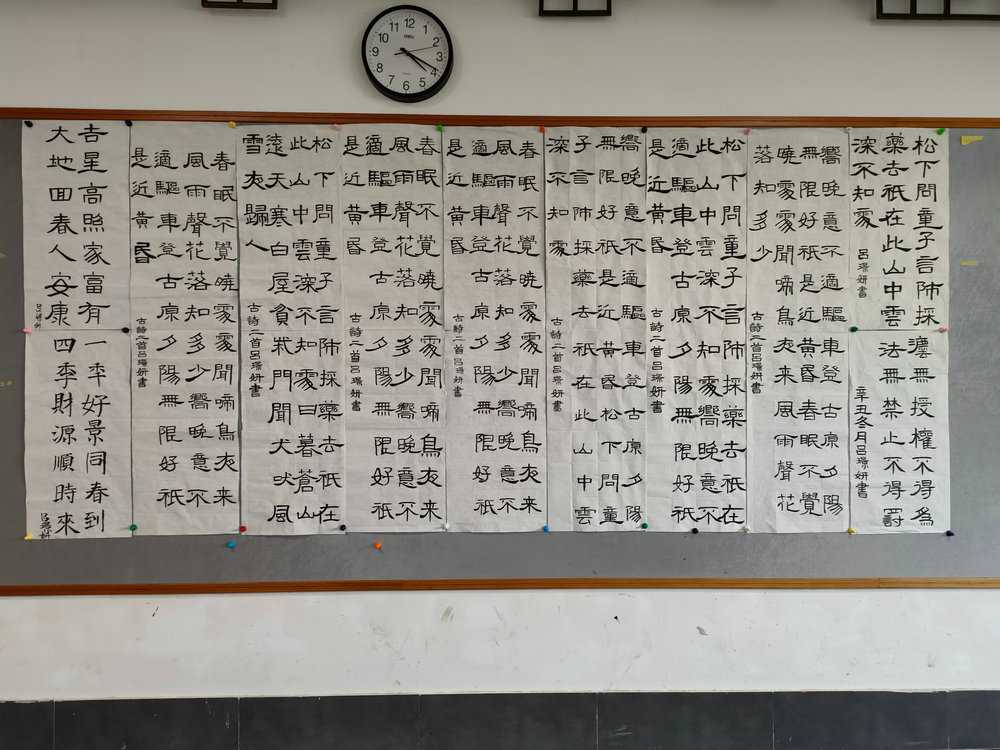 12
1
2
3
4
5
6
7
8
9
10
11
deli
松下問童子言師採
藥去祇在此山中雲
深不知處
呂璨妍書
灋無授權不得為
法無禁止不得罰
辛丑冬月呂璨妍書
嚮晚意不適驅車登古原夕陽
無限好祇是近黃昏春眠不覺
曉處處聞啼鳥夜来風雨聲花
落知多少
古詩二首呂璨妍書
松下問童子言師採藥去祇在
此山中雲深不知處嚮晚意不
適驅車登古原夕陽無限好祇
是近黃昏
古詩二首呂璨妍書
嚮晚意不適驅車登古原夕陽
無限好祇是近黃昏松下問童
子言師採藥去祇在此山中雲
深不知處
古詩二首呂璨妍書
春眠不覺曉處處聞啼鳥夜来
風雨聲花落知多少嚮晚意不
適驅車登古原夕陽無限好祇
是近黃昏
古詩二首呂璨妍書
春眠不覺曉處處聞啼鳥夜来
風雨聲花落知多少嚮晚意不
適驅車登古原夕陽無限好祇
是近黃昏
古詩二首呂璨妍書
松下問童子言師採藥去祇在
此山中雲深不知處日暮蒼山
遠天寒白屋貧柴門聞犬吠風
雪夜歸人
古詩二首呂璨妍書
春眠不覺曉處處聞啼鳥夜来
風雨聲花落知多少嚮晚意不
適驅車登古原夕陽無限好祇
是近黃昏
古詩二首呂璨妍書
吉星高照家富有
大地回春人安康
一年好景同春到
四季財源順時來
呂璨妍